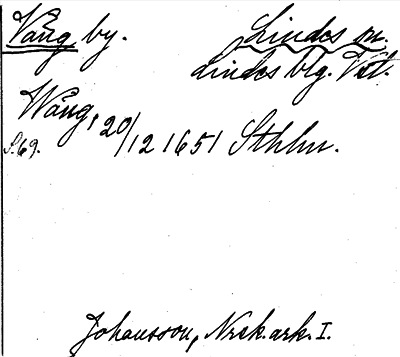 Vång by. Lindes sn.
Lindes blg. Vstl.
Wång, 20/12 1651 Sthlm.
S. 69.
Johansson, Nrsk. ark. I.